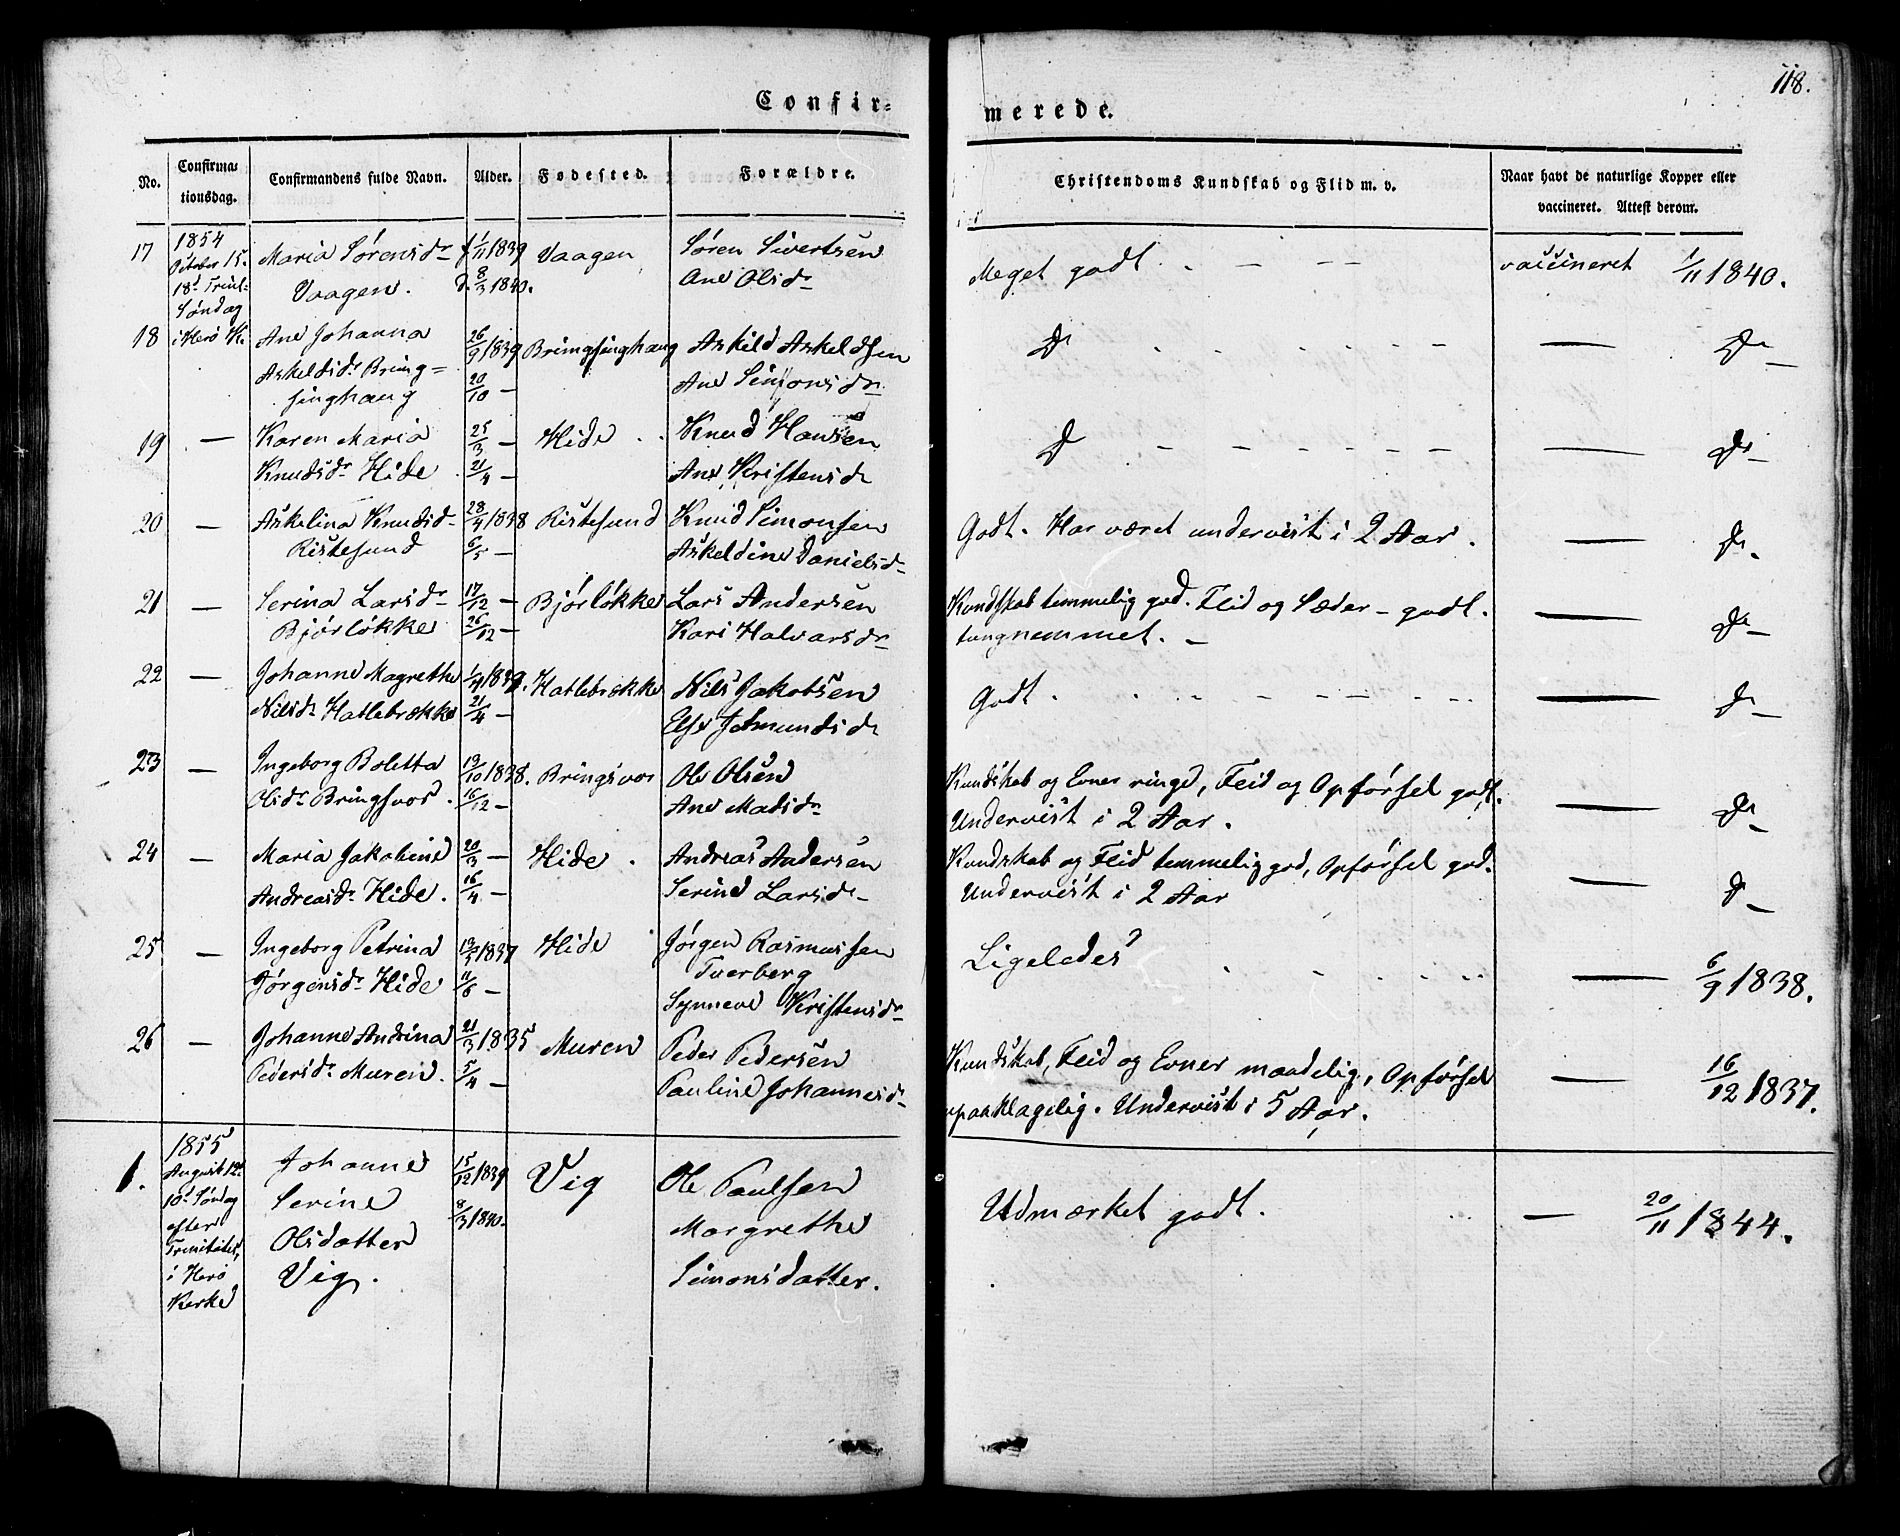 118.
Confir=
merede.
No.
Confirma=
tionsdag.
Confirmandens fulde Navn.
Alder.
Fødested.
Forældre.
Christendoms Kundskab og Flid m. v.
Naar havt de naturlige Kopper eller
vaccineret. Attest derom.
17 1854 Maria Sørensdr f. 1/11 1839 Vaagen Søren Sivertsen Meget godt - - - vaccineret 1/11 1840.
October 15. Vaagen. d. 8/3 1840. Ane Olsdr
18d Trinit.
Søndag
18 i Herø K. Ane Johanna 26/9 1839 Bringsinghaug Askild Askeldsen Do - - - — Do —
Askeldsdr Bring= 20/10 — Ane Simonsdr
singhaug
19 — Karen Maria 25/3 — Hide Knud Hansen Do - - - — Do —
Knudsdr Hide 21/4 — Ane Kristensdr
20 — Askelina Knudsdr 28/4 1838 Ristesund Knud Simonsen Godt. Har været undervist i 2 Aar. — Do
Ristesund 6/5 — Askeldine Danielsdr
21 — Serina Larsdr 17/12 — Bjørløkke Lars Andersen Kundskab temmelig god. Flid og Sæder - godt. — Do —
Bjørløkke 26/12 — Kari Halvarsdr tungnemmet. —
22 — Johanne Magrethe 1/4 1839. Hatlebrække Nils Jakobsen Godt. - - - — Do —
Nilsdr Hatlebrække 21/4 — Else Jetmundsdr
23 — Ingeborg Boletta 19/10 1838. Bringsvor Ole Olsen Kundskab og Evner ringe, Flid og Opførsel godt. — Do —
Olsdr Bringsvor. 16/12 — Ane Madsdr Undervist i 2 Aar.
24 — Maria Jakobine 20/3 — Hide Andreas Andersen Kundskab og Flid temmelig god, Opførsel god. — Do —
Andreasdr Hide. 16/4 — Serine Larsdr Undervist i 2 Aar
25 — Ingeborg Petrina 19/5 1837 Hide Jørgen Rasmussen Ligeledes - - - — 6/9 1838.
Jørgensdr Hide 11/6 — Tverberg
Synneve Kristensdr
26 — Johanne Andrina 21/3 1835 Muren Peder Pedersen Kundskab, Flid og Evner maadelig, Opførsel — 16/12 1837.
Pedersdr Muren. 5/4 — Pauline Johannesdr upaaklagelig. Undervist i 5 Aar.
1. 1855 Johanne 15/12 1839 Vig Ole Paulsen Udmærket godt. — 20/11 1844.
August 12te Serine 8/3 1840. Margrethe
10d Søndag Olsdatter Simonsdatter.
efter Vig.
Trinitatis,
i Herø
Kirke